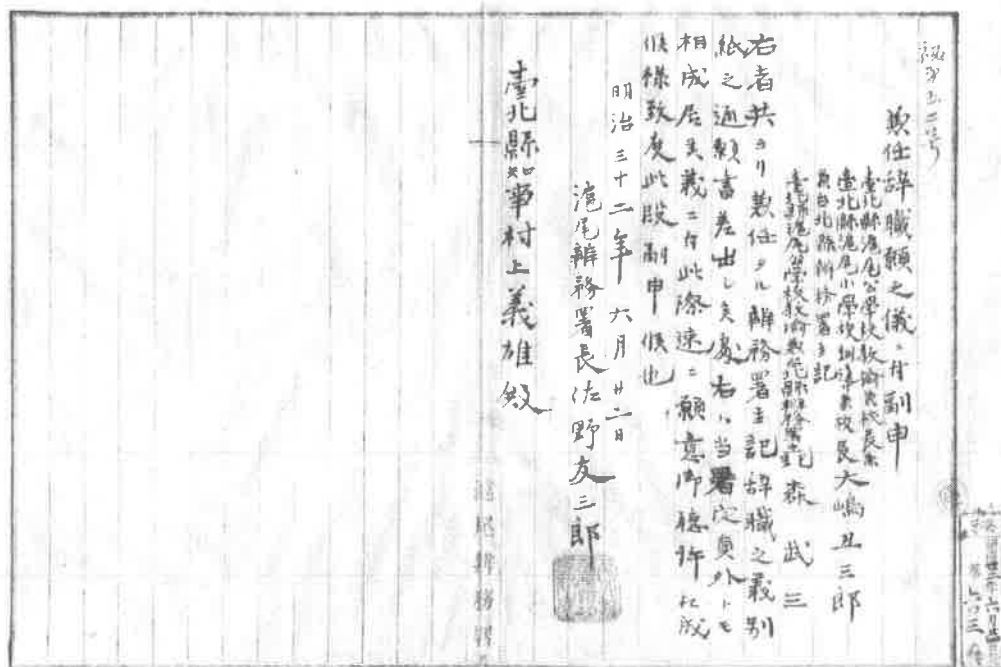 兼任辞職願之儀ニ付副申
臺北縣滬尾公學校教諭兼校長兼
臺北縣滬尾小學校訓導兼校長大嶋丑三郎
兼台北縣辨務署主記
臺北縣滬尾公學校教諭兼臺北縣辨務署主記森武三
右者共ヨリ兼任タル辨務署主記辞職之義別
紙之通願書差出し候處右ハ当署定員外トモ
相成居候義ニ付此際速ニ願意御聴許相成
候様致度此段副申候也
明治三十二年六月廿二日
滬尾辨務署長佐野友三郎
臺北縣知事村上義雄殿
滬尾辨務署